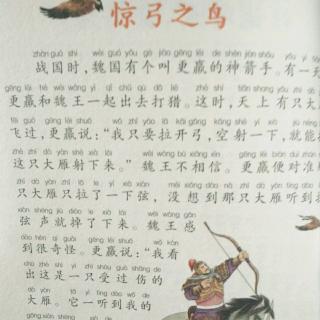 惊弓之鸟
zhàn guó shí wèi guó yǒu gè jiào gēng léi de shén jiàn shǒu yǒu yì
战国时，魏国有个叫更羸的神箭手。有一
gēng léi hé wèi wáng yì qǐ chū qù dǎ liè
更羸和魏王一起出去打猎。这时，天上有只大
fēi guò gēng léi shuō wǒ zhǐ yào lā kāi gōng kōng shè yí xià jiù néng
飞过，更羸说：“我只要拉开弓，空射一下，就能
zhè zhī dà yàn shè xià lái wèi wáng bù xiāng xìn gēng léi biàn duì zhǔn
这只大雁射下来。”魏王不相信。更羸便对准
zhī dà yàn zhǐ lā le yí xià xián méi xiǎng dào nà zhī dà yàn tīng dào
只大雁只拉了一下弦，没想到那只大雁听到
xián shēng jiù diào le xià lái wèi wáng gǎn
弦声就掉了下来。魏王感
dào hěn qí guài gēng léi shuō wǒ kàn
到很奇怪。更羸说：“我看
chū zhè shì yì zhī shòu guò shāng de
出这是一只受过伤的
dà yàn tā yì tīng dào wǒ de
大雁。它一听到我的
gōng xián shēng